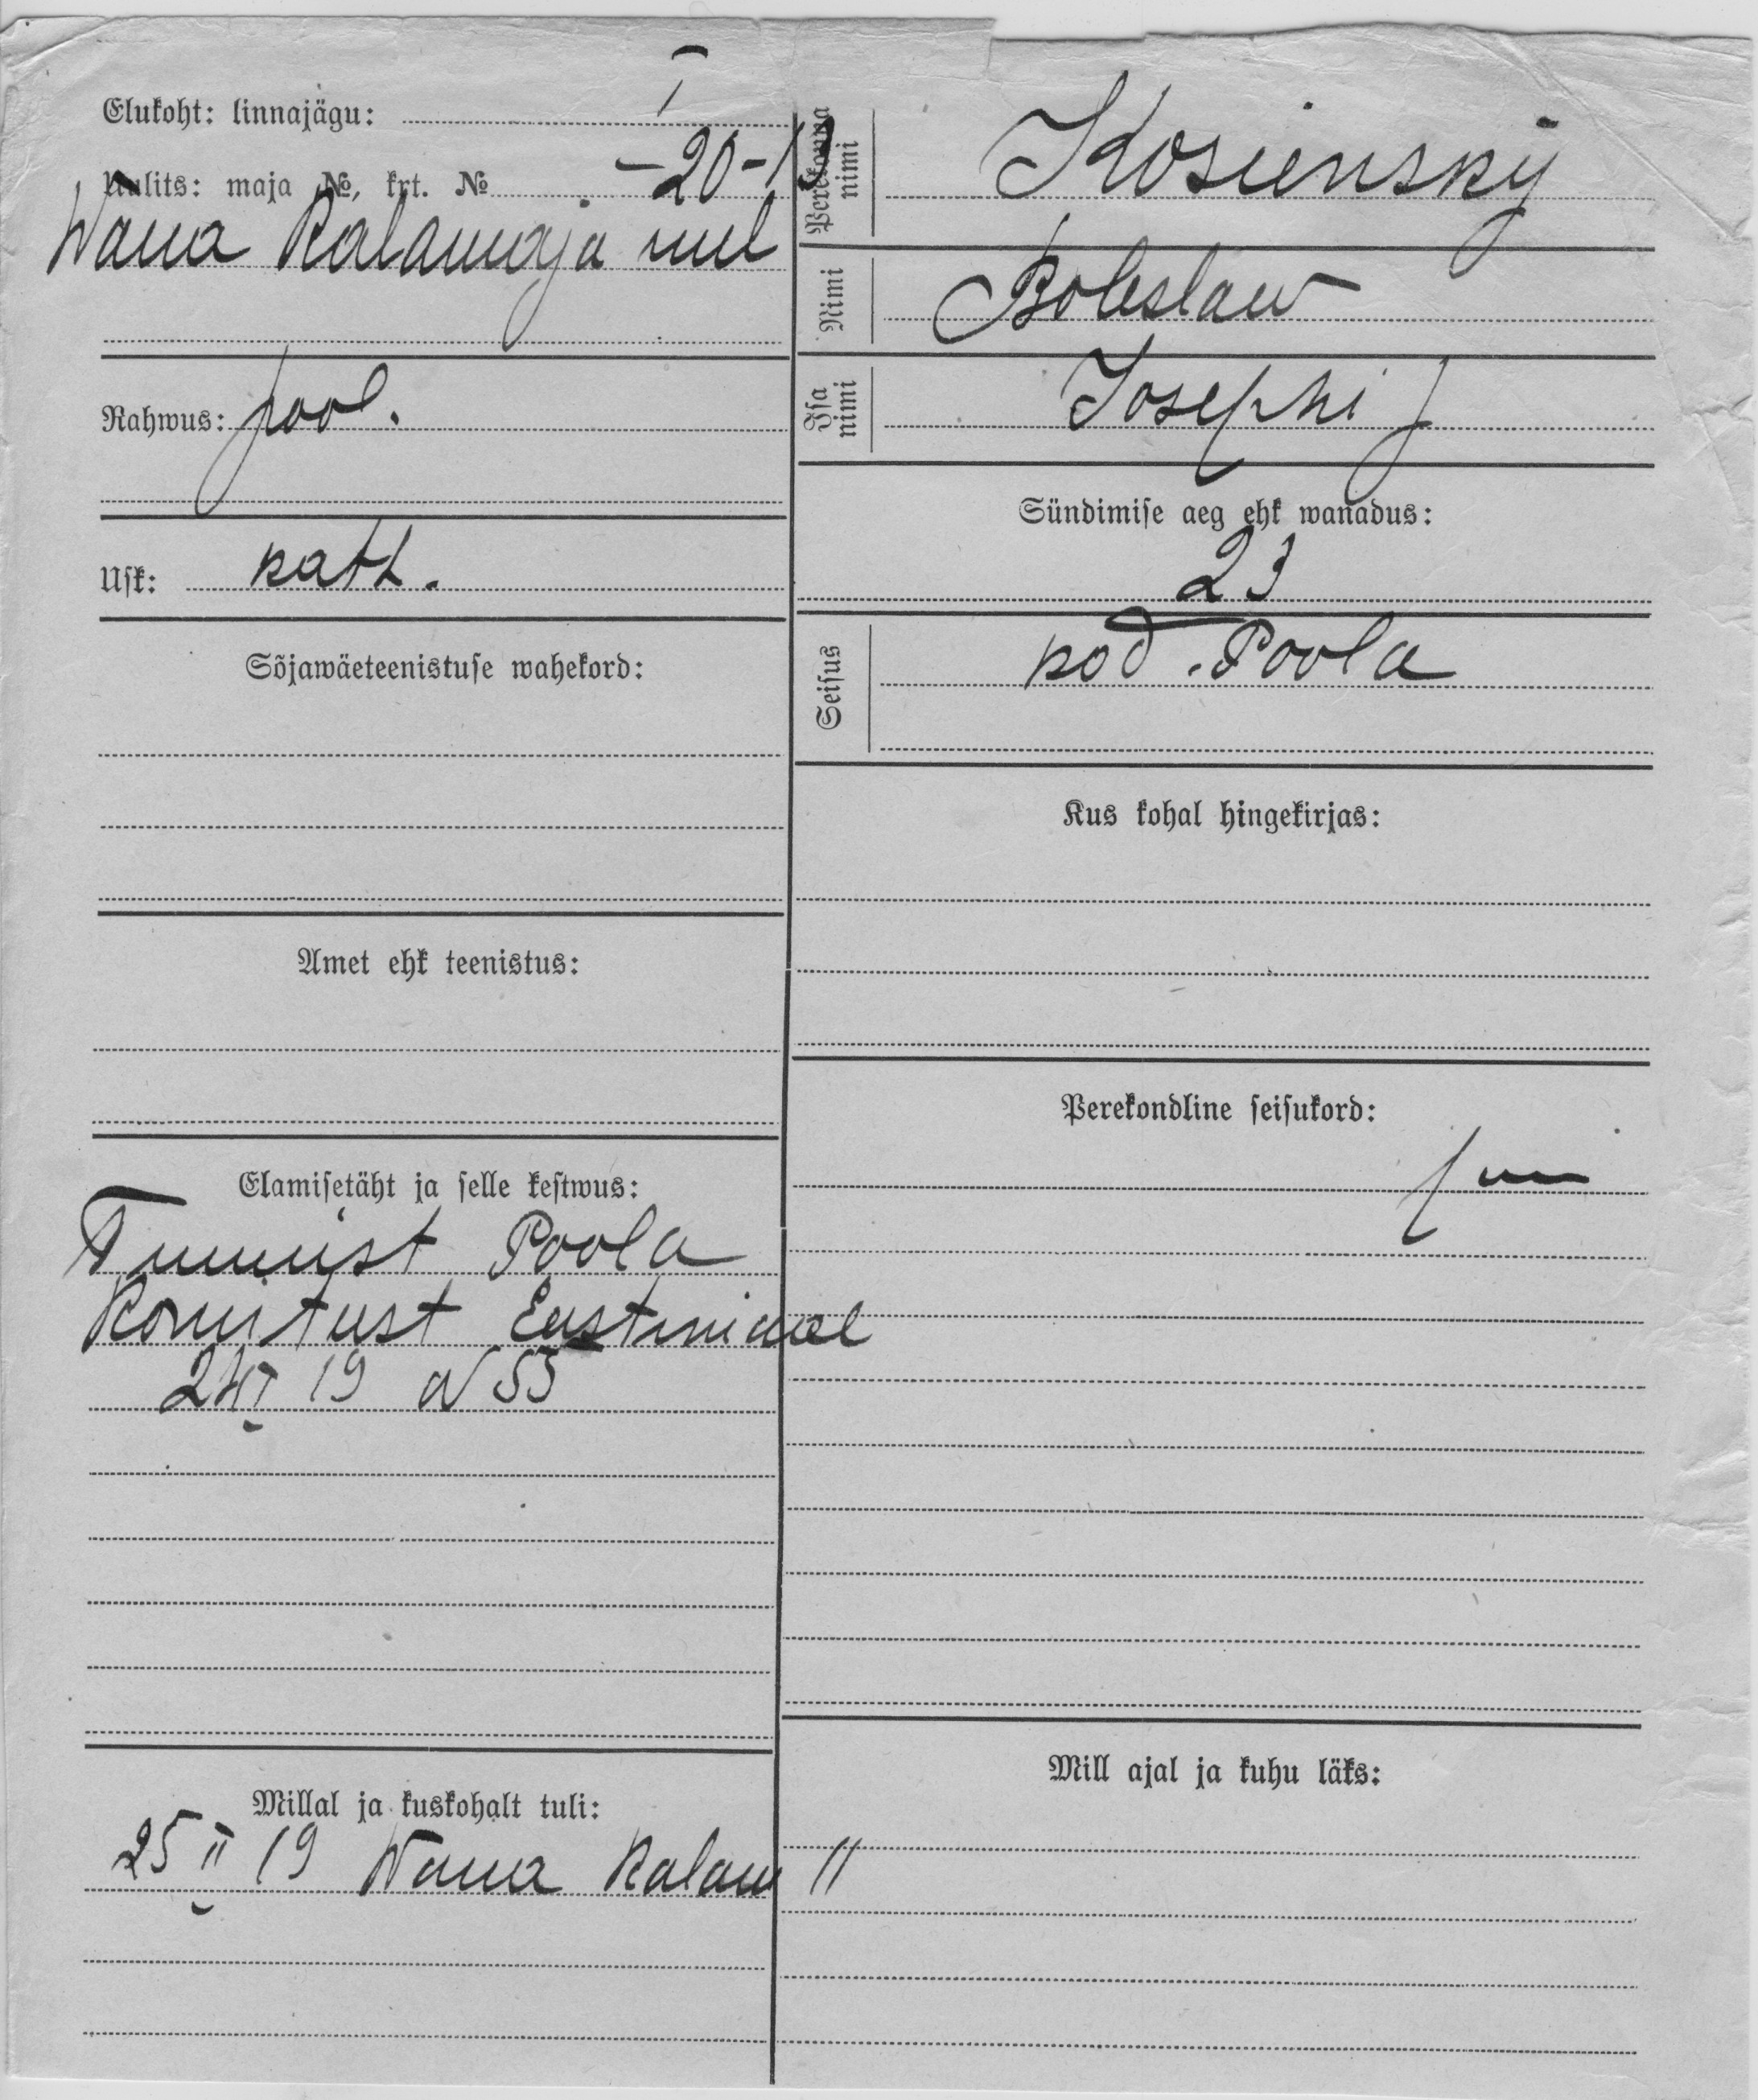 Elukoht: linnajägu: I
Uulits: maja №, krt. № -20-13
Wana Kalamaja uul
Rahwus: pool.
Usk: kath.
Sõjawäeteenistuse wahekord:
Amet ehk teenistus:
Elamisetäht ja selle kestwus:
Tunnist Poola
Komitust Eestimaal
24 II 19 N 55
Millal ja kuskohalt tuli:
25 II 19 Wana Kalam 11
Perekonna nimi Kosiensky
Nimi Boleslaw
Isa nimi Josephi
Sündimise aeg ehk wanadus:
23
Seisus kod. Poola
Kus kohal hingekirjas:
Perekondline seisukord:
Mill ajal ja kuhu läks: